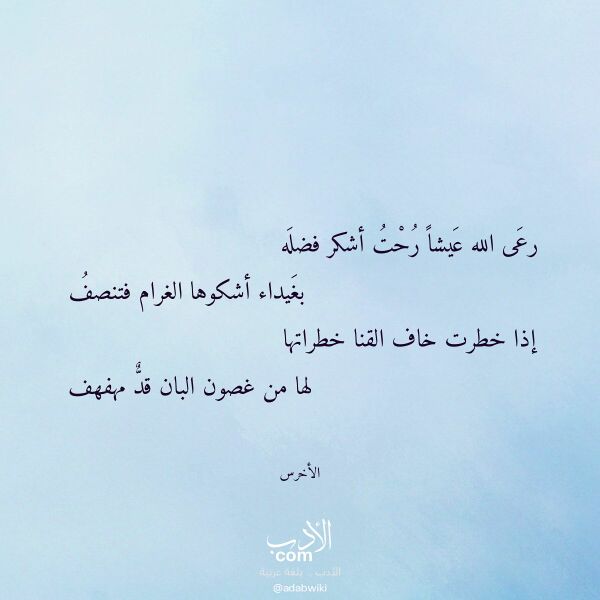 رعَى الله عَيشاً رُحْتُ أشكر فضلَه
بغَيداء أشكوها الغرام فتنصفُ
إذا خطرت خاف القنا خطراتها
لها من غصون البان قدٌّ مهفهف
الأخرس
الأدب
com
الأدب .. بلغة عربية
@adabwiki